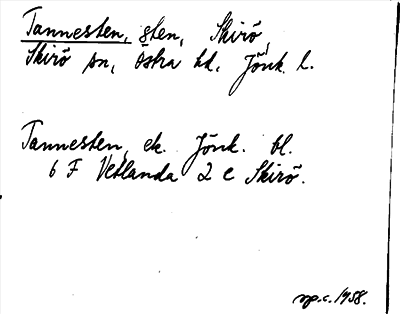 Tannesten, sten, Skirö,
Skirö sn, Östra hd, Jönk. l.
Tannesten, ek. Jönk. bl.
6 F Vetlanda 2 e Skirö.
1958.